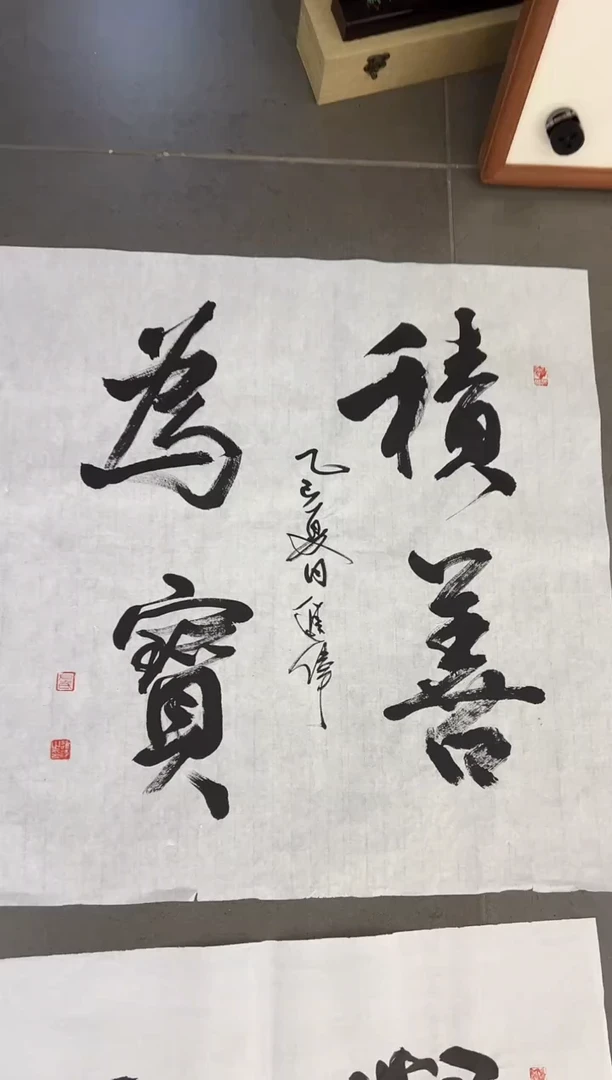 積善
為寶
乙巳夏日